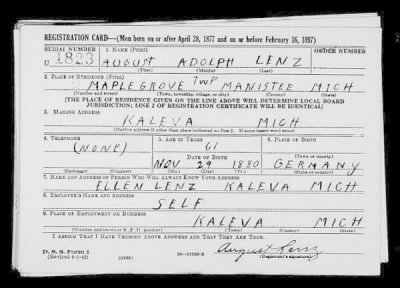 REGISTRATION CARD—(Men born on or after April 28, 1877 and on or before February 16, 1897)
SERIAL NUMBER 1. NAME (Print) ORDER NUMBER
U 1823 AUGUST ADOLPH LENZ
(First) (Middle) (Last)
2. PLACE OF RESIDENCE (Print)
MAPLE GROVE TWP MANISTEE MICH
(Number and street) (Town, township, village, or city) (County) (State)
[THE PLACE OF RESIDENCE GIVEN ON THE LINE ABOVE WILL DETERMINE LOCAL BOARD
JURISDICTION; LINE 2 OF REGISTRATION CERTIFICATE WILL BE IDENTICAL]
3. MAILING ADDRESS
KALEVA MICH
(Mailing address if other than place indicated on line 2. If same insert word same)
4. TELEPHONE 5. AGE IN YEARS 6. PLACE OF BIRTH
(NONE) 61
DATE OF BIRTH (Town or county)
NOV 29 1880 GERMANY
(Exchange) (Number) (Mo.) (Day) (Yr.) (State or country)
7. NAME AND ADDRESS OF PERSON WHO WILL ALWAYS KNOW YOUR ADDRESS
ELLEN LENZ KALEVA MICH
8. EMPLOYER'S NAME AND ADDRESS
SELF
9. PLACE OF EMPLOYMENT OR BUSINESS
KALEVA MICH
(Number and street or R. F. D. number) (Town) (County) (State)
I AFFIRM THAT I HAVE VERIFIED ABOVE ANSWERS AND THAT THEY ARE TRUE.
August Lenz
D. S. S. Form 1
(Revised 4-1-42) (over) (Registrant's signature)